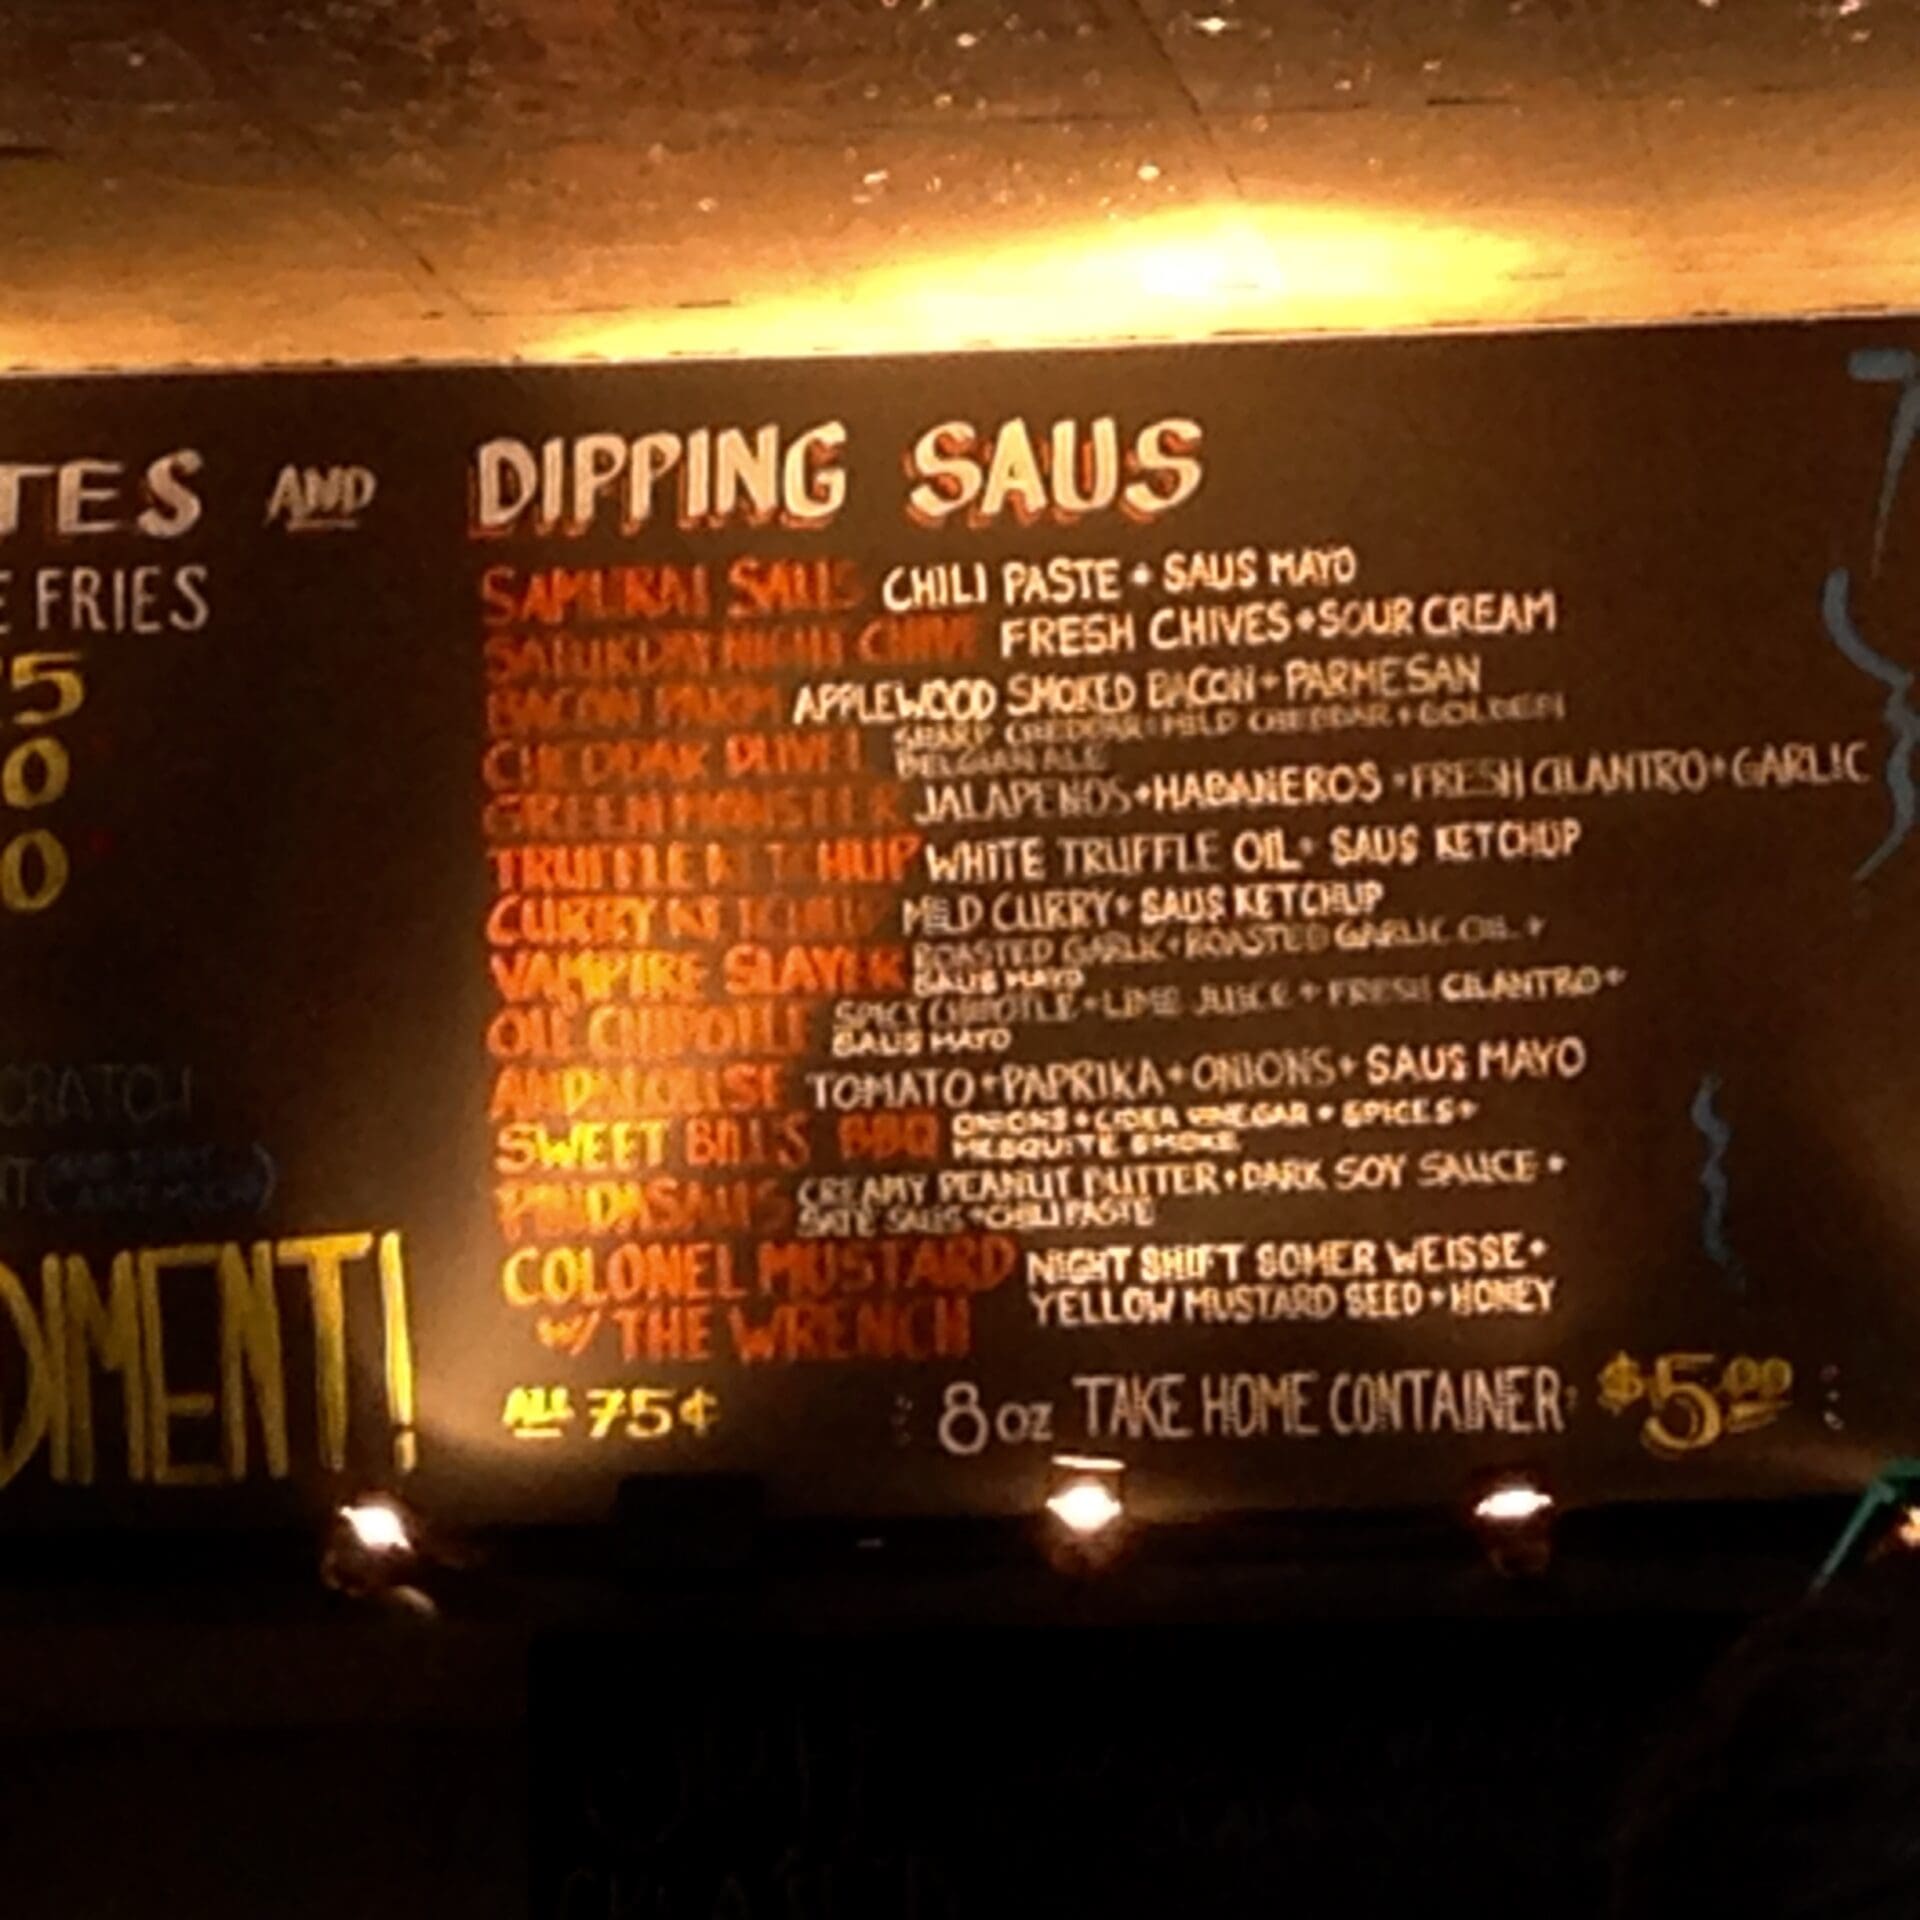 TES AND DIPPING SAUS
FRIES
SAMURAI SAUS CHILI PASTE + SAUS MAYO
SATURDAY NIGHT CHIVE FRESH CHIVES + SOUR CREAM
BACON PARM APPLEWOOD SMOKED BACON + PARMESAN
CHEDDAR DUVEL SHARP CHEDDAR + MILD CHEDDAR + GOLDEN
BELGIAN ALE
GREEN MONSTER JALAPENOS + HABANEROS + FRESH CILANTRO + GARLIC
TRUFFLE KETCHUP WHITE TRUFFLE OIL + SAUS KETCHUP
CURRY KETCHUP MILD CURRY + SAUS KETCHUP
VAMPIRE SLAYER ROASTED GARLIC + ROASTED GARLIC OIL +
SAUS MAYO
OLE CHIPOTLE SPICY CHIPOTLE + LIME JUICE + FRESH CILANTRO +
SAUS MAYO
ANDALOUSE TOMATO + PAPRIKA + ONIONS + SAUS MAYO
SWEET BILL'S BBQ ONIONS + CIDER VINEGAR + SPICES +
MESQUITE SMOKE
PINDASAUS CREAMY PEANUT BUTTER + DARK SOY SAUCE +
DATE SAUS + CHILI PASTE
COLONEL MUSTARD NIGHT SHIFT SOMER WEISSE +
W/ THE WRENCH YELLOW MUSTARD SEED + HONEY
ALL 75¢ 8 OZ TAKE HOME CONTAINER: $5.00
CRATCH
DIMENT!